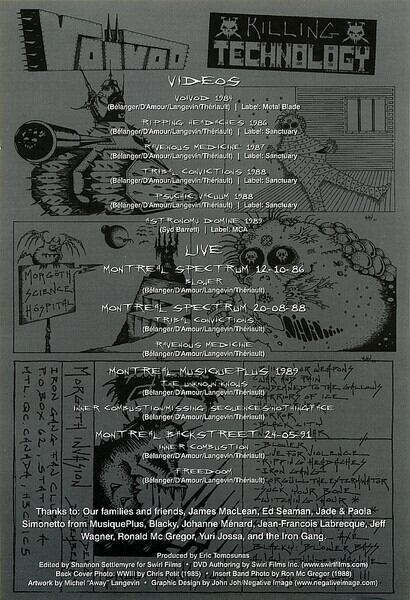 VOIVOD
KILLING
TECHNOLOGY
VIDEOS
VOIVOD 1984
(Bélanger/D'Amour/Langevin/Thériault) | Label: Metal Blade
RIPPING HEADACHES 1986
(Bélanger/D'Amour/Langevin/Thériault) | Label: Sanctuary
RAVENOUS MEDICINE 1987
(Bélanger/D'Amour/Langevin/Thériault) | Label: Sanctuary
TRIBAL CONVICTIONS 1988
(Bélanger/D'Amour/Langevin/Thériault) | Label: Sanctuary
PSYCHIC VACUUM 1988
(Bélanger/D'Amour/Langevin/Thériault) | Label: Sanctuary
ASTRONOMY DOMINE 1989
(Syd Barrett) | Label: MCA
LIVE
MORGOTH
SCIENCE
HOSPITAL
MONTREAL SPECTRUM 12-10-86
BLOWER
(Bélanger/D'Amour/Langevin/Thériault)
MONTREAL SPECTRUM 20-08-88
TRIBAL CONVICTIONS
(Bélanger/D'Amour/Langevin/Thériault)
RAVENOUS MEDICINE
(Bélanger/D'Amour/Langevin/Thériault)
MONTREAL MUSIQUEPLUS 1989
THE UNKNOWN KNOWS
(Bélanger/D'Amour/Langevin/Thériault)
INNER COMBUSTION/MISSING SEQUENCES/NOTHINGFACE
(Bélanger/D'Amour/Langevin/Thériault)
MONTREAL BACKSTREET 24-05-91
INNER COMBUSTION
(Bélanger/D'Amour/Langevin/Thériault)
FREEDOOM
(Bélanger/D'Amour/Langevin/Thériault)
MORGOTH INVASION
IRON GANG FAN CLUB
WAR AND PAIN
BLACK CITY
LIVE FOR VIOLENCE
RIPPING HEADACHES
IRON GANG
KORGULL THE EXTERMINATOR
SUCK YOUR BONE
WITCHING HOUR
BLACKY: BLOWER BASS
Thanks to: Our families and friends, James MacLean, Ed Seaman, Jade & Paola
Simonetto from MusiquePlus, Blacky, Johanne Ménard, Jean-Francois Labrecque, Jeff
Wagner, Ronald Mc Gregor, Yuri Jossa, and the Iron Gang.
Produced by Eric Tomosunas
Edited by Shannon Settlemyre for Swirl Films • DVD Authoring by Swirl Films Inc. (www.swirlfilms.com)
Back Cover Photo: WWIII by Chris Petit (1985) • Insert Band Photo by Ron Mc Gregor (1988)
Artwork by Michel "Away" Langevin • Graphic Design by John Joh/Negative Image (www.negativeimage.com)